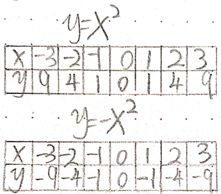 y=x²
x -3 -2 -1 0 1 2 3
y 9 4 1 0 1 4 9
y=-x²
x -3 -2 -1 0 1 2 3
y -9 -4 -1 0 -1 -4 -9